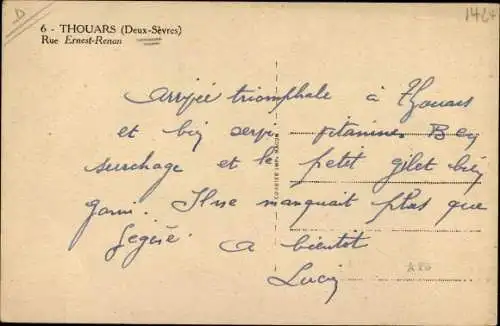 D
1424
6 - THOUARS (Deux-Sèvres)
Rue Ernest-Renan
Arrivée triomphale à Thouars
et vitamines. Bey
surchage et le petit gilet bien
garni. Il ne manquait plus que
A bientôt
Lucy